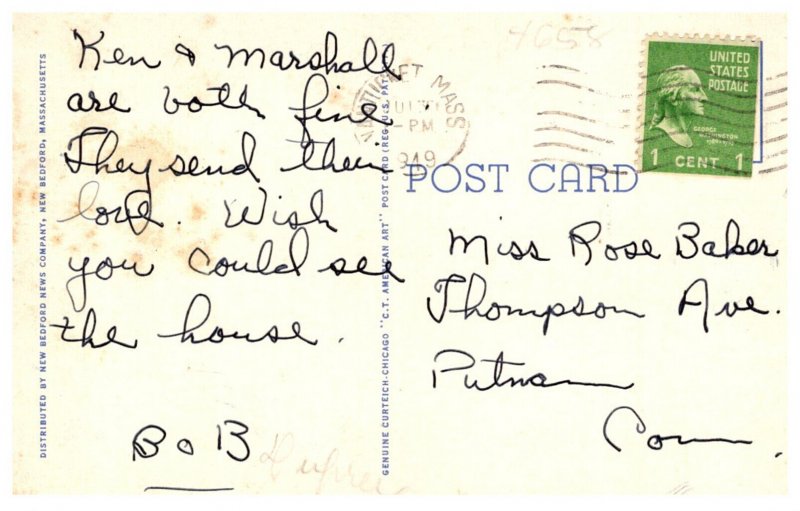 Ken & Marshall
are both fine
They send their
love. Wish
you could see
the house.
BoB
4658
MASS
PM
1949
UNITED
STATES
POSTAGE
GEORGE
WASHINGTON
1 CENT 1
POST CARD
Miss Rose Baker
Thompson Ave.
Putnam
Conn.
DISTRIBUTED BY NEW BEDFORD NEWS COMPANY, NEW BEDFORD, MASSACHUSETTS
GENUINE CURTEICH-CHICAGO "C.T. AMERICAN ART" POST CARD (REG. U.S. PAT.